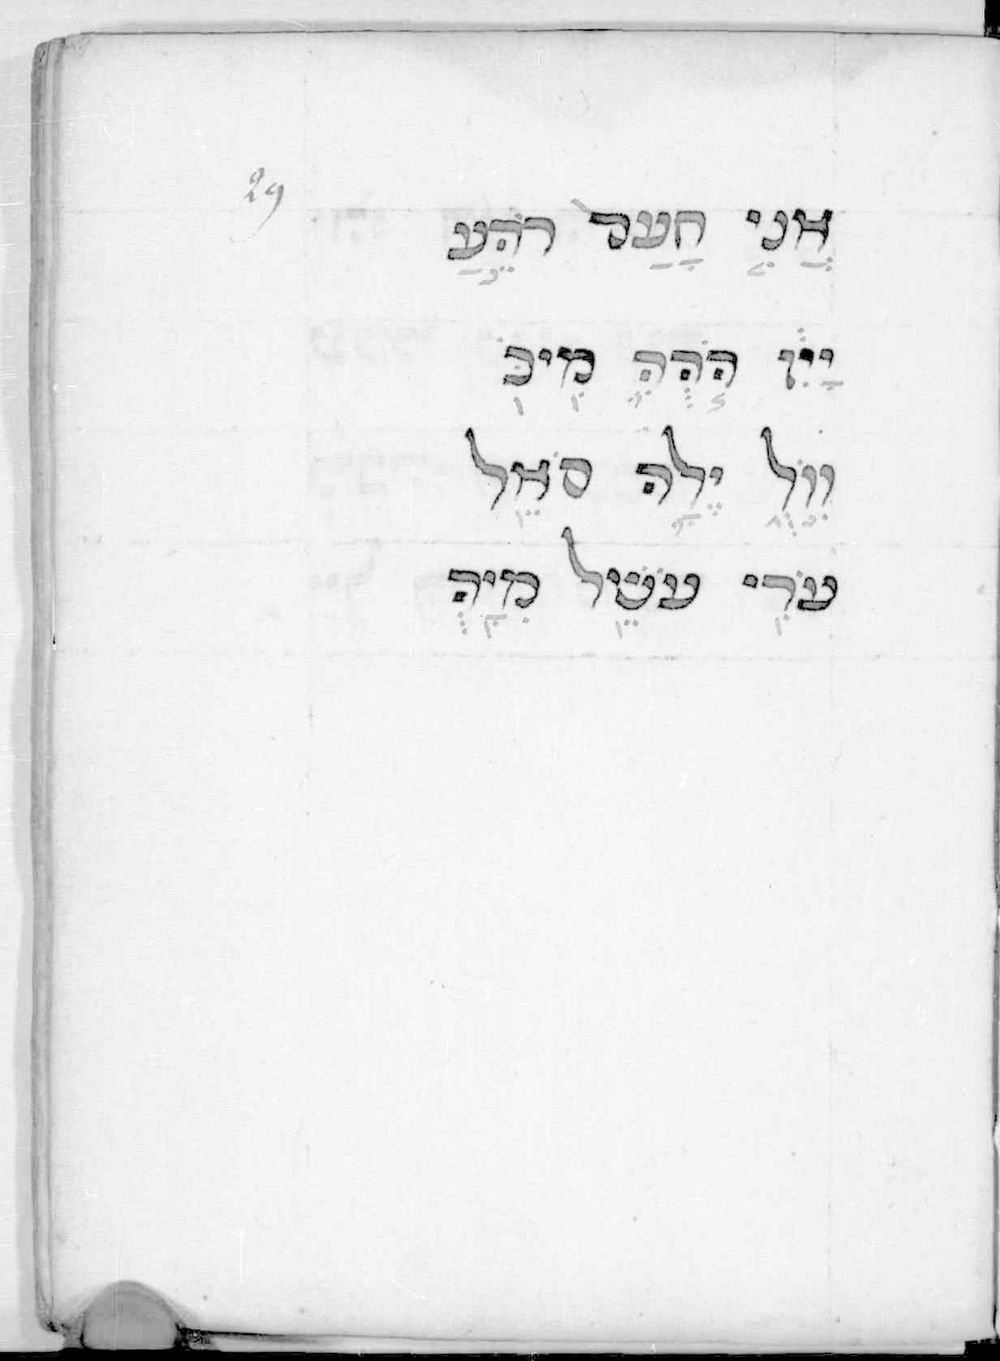 29
אני חעם רהע
ייז ההה מיכ
וול ילה סאל
ערי עשל מיה